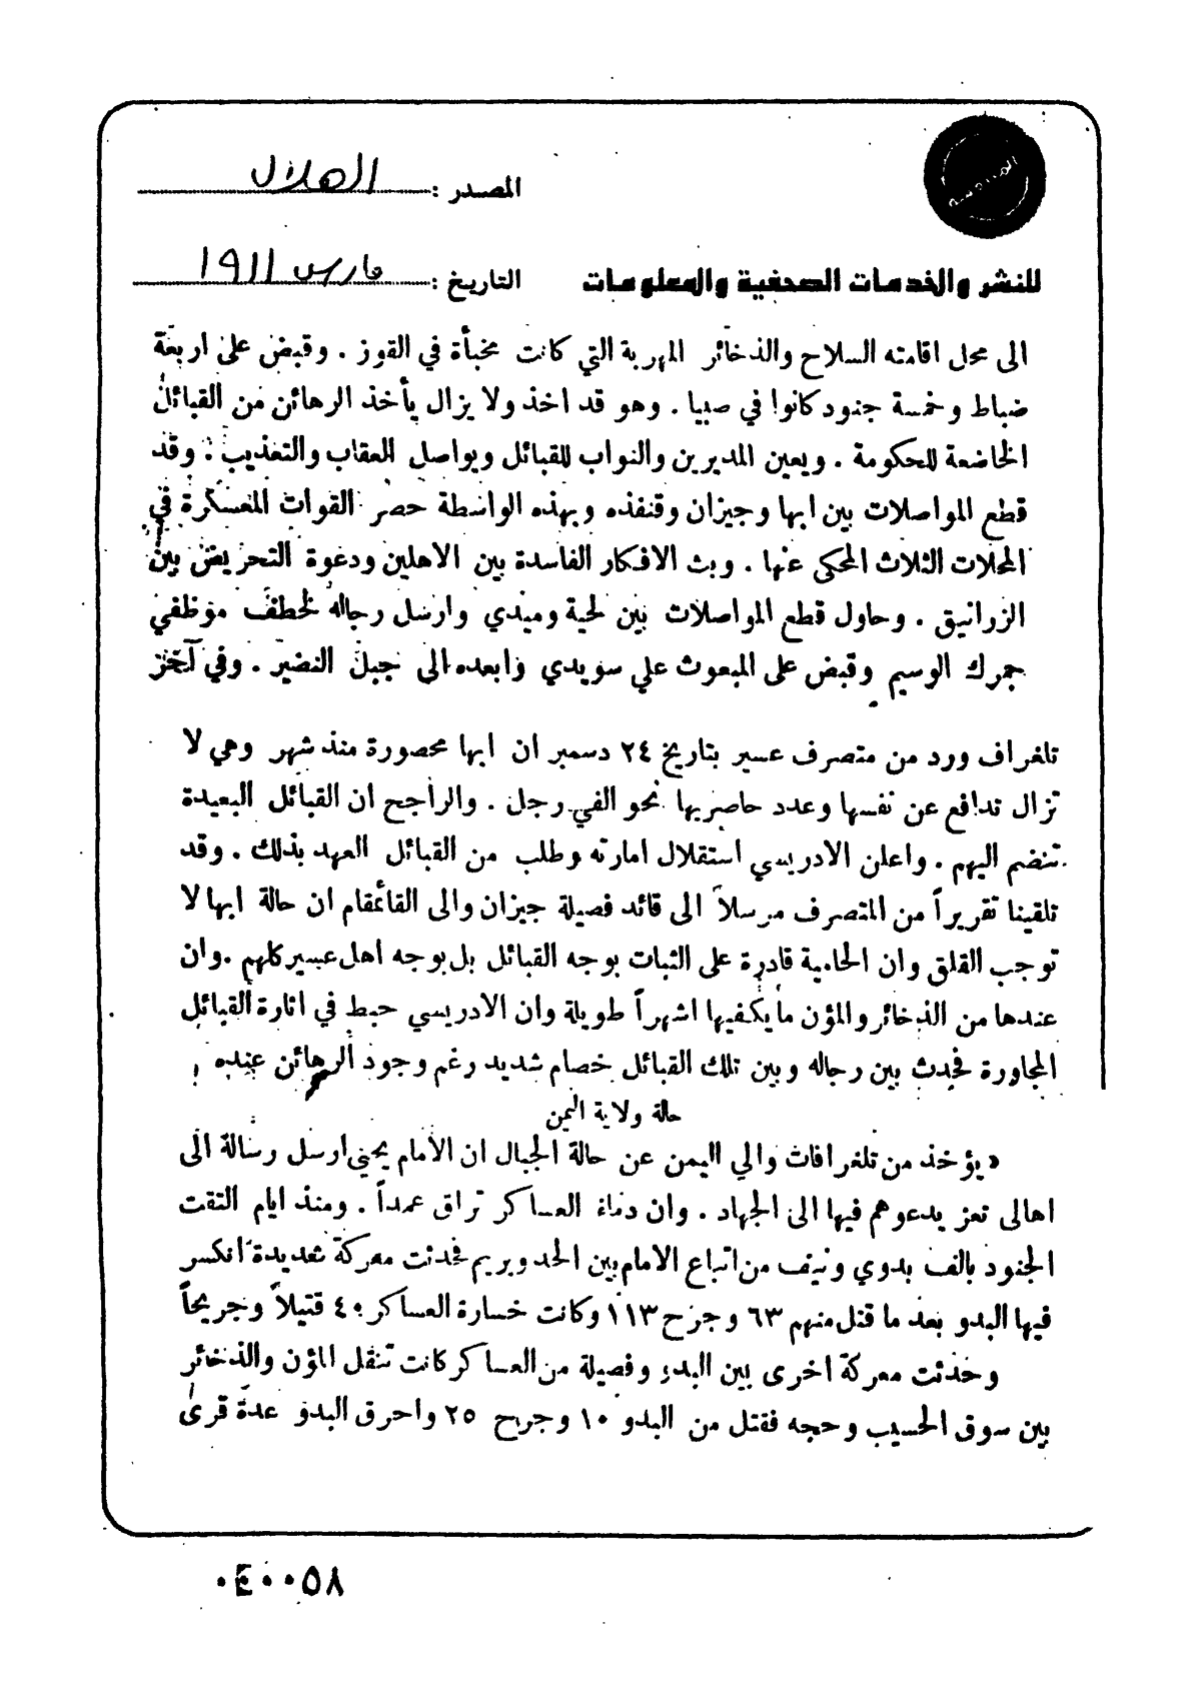 المصدر : الهلال
التاريخ : مارس ١٩١١
للنشر والخدمات الصحفية والمعلومات
الى محل اقامته السلاح والذخائر المهربة التي كانت مخبأة في القوز . وقبض على اربعة
ضباط وخمسة جنود كانوا في صبيا . وهو قد اخذ ولا يزال يأخذ الرهائن من القبائل
الخاضعة للحكومة . ويعين المديرين والنواب للقبائل ويواصل العقاب والتعذيب . وقد
قطع المواصلات بين ابها وجيزان وقنفذه وبهذه الواسطة حصر القوات المعسكرة في
المحلات الثلاث المحكى عنها . وبث الافكار الفاسدة بين الاهلين ودعوة التحريض بين
الزرانيق . وحاول قطع المواصلات بين لحية وميدي وارسل رجاله لخطف موظفي
جمرك الوسيم وقبض على المبعوث علي سويدي وابعده الى جبل النضير . وفي آخر
تلغراف ورد من متصرف عسير بتاريخ ٢٤ دسمبر ان ابها محصورة منذ شهر وهي لا
تزال تدافع عن نفسها وعدد حاصريها نحو الفي رجل . والراجح ان القبائل البعيدة
تنضم اليهم . واعلن الادريسي استقلال امارته وطلب من القبائل العهد بذلك . وقد
تلقينا تقريراً من المتصرف مرسلاً الى قائد فصيلة جيزان والى القائمقام ان حالة ابها لا
توجب القلق وان الحامية قادرة على الثبات بوجه القبائل بل بوجه اهل عسير كلهم . وان
عندها من الذخائر والمؤن ما يكفيها اشهراً طويلة وان الادريسي حبط في اثارة القبائل
المجاورة فحدث بين رجاله وبين تلك القبائل خصام شديد رغم وجود الرهائن عنده
حالة ولاية اليمن
« يؤخذ من تلغرافات والي اليمن عن حالة الجبال ان الامام يحيى ارسل رسالة الى
اهالى تعز يدعوهم فيها الى الجهاد . وان دماء العساكر تراق عمداً . ومنذ ايام التقت
الجنود بالف بدوي ونيف من اتباع الامام بين الحد وبريم فحدثت معركة شديدة انكسر
فيها البدو بعد ما قتل منهم ٦٣ وجرح ١١٣ وكانت خسارة العساكر ٤٠ قتيلاً وجريحاً
وحدثت معركة اخرى بين البدو وفصيلة من العساكر كانت تنقل المؤن والذخائر
بين سوق الحسيب وحجه فقتل من البدو ١٠ وجرح ٢٥ واحرق البدو عدة قرى
٠٤٠٠٥٨